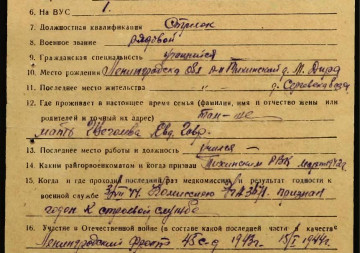 6. На ВУС 1.
7. Должностная квалификация Стрелок
8. Военное звание рядовой
9. Гражданская специальность учащийся
10. Место рождения Ленинградская обл. р-н Тихвинский д.
11. Последнее место жительства д.
12. Где проживает в настоящее время семья (фамилия, имя и отчество жены или
родителей и точный их адрес) там-же
мать Евд. Гавр.
13. Последнее место работы и должность учился
14. Каким райгорвоенкоматом и когда призван Тихвинским РВК
15. Когда и где проходил последний раз медкомиссию и результат годности к
военной службе 44 Комиссией признан
годен к строевой службе
16. Участие в Отечественной войне (в составе какой последней части и качестве
Ленинградский фронт 45 сд 1943г. 15/I 1944г.